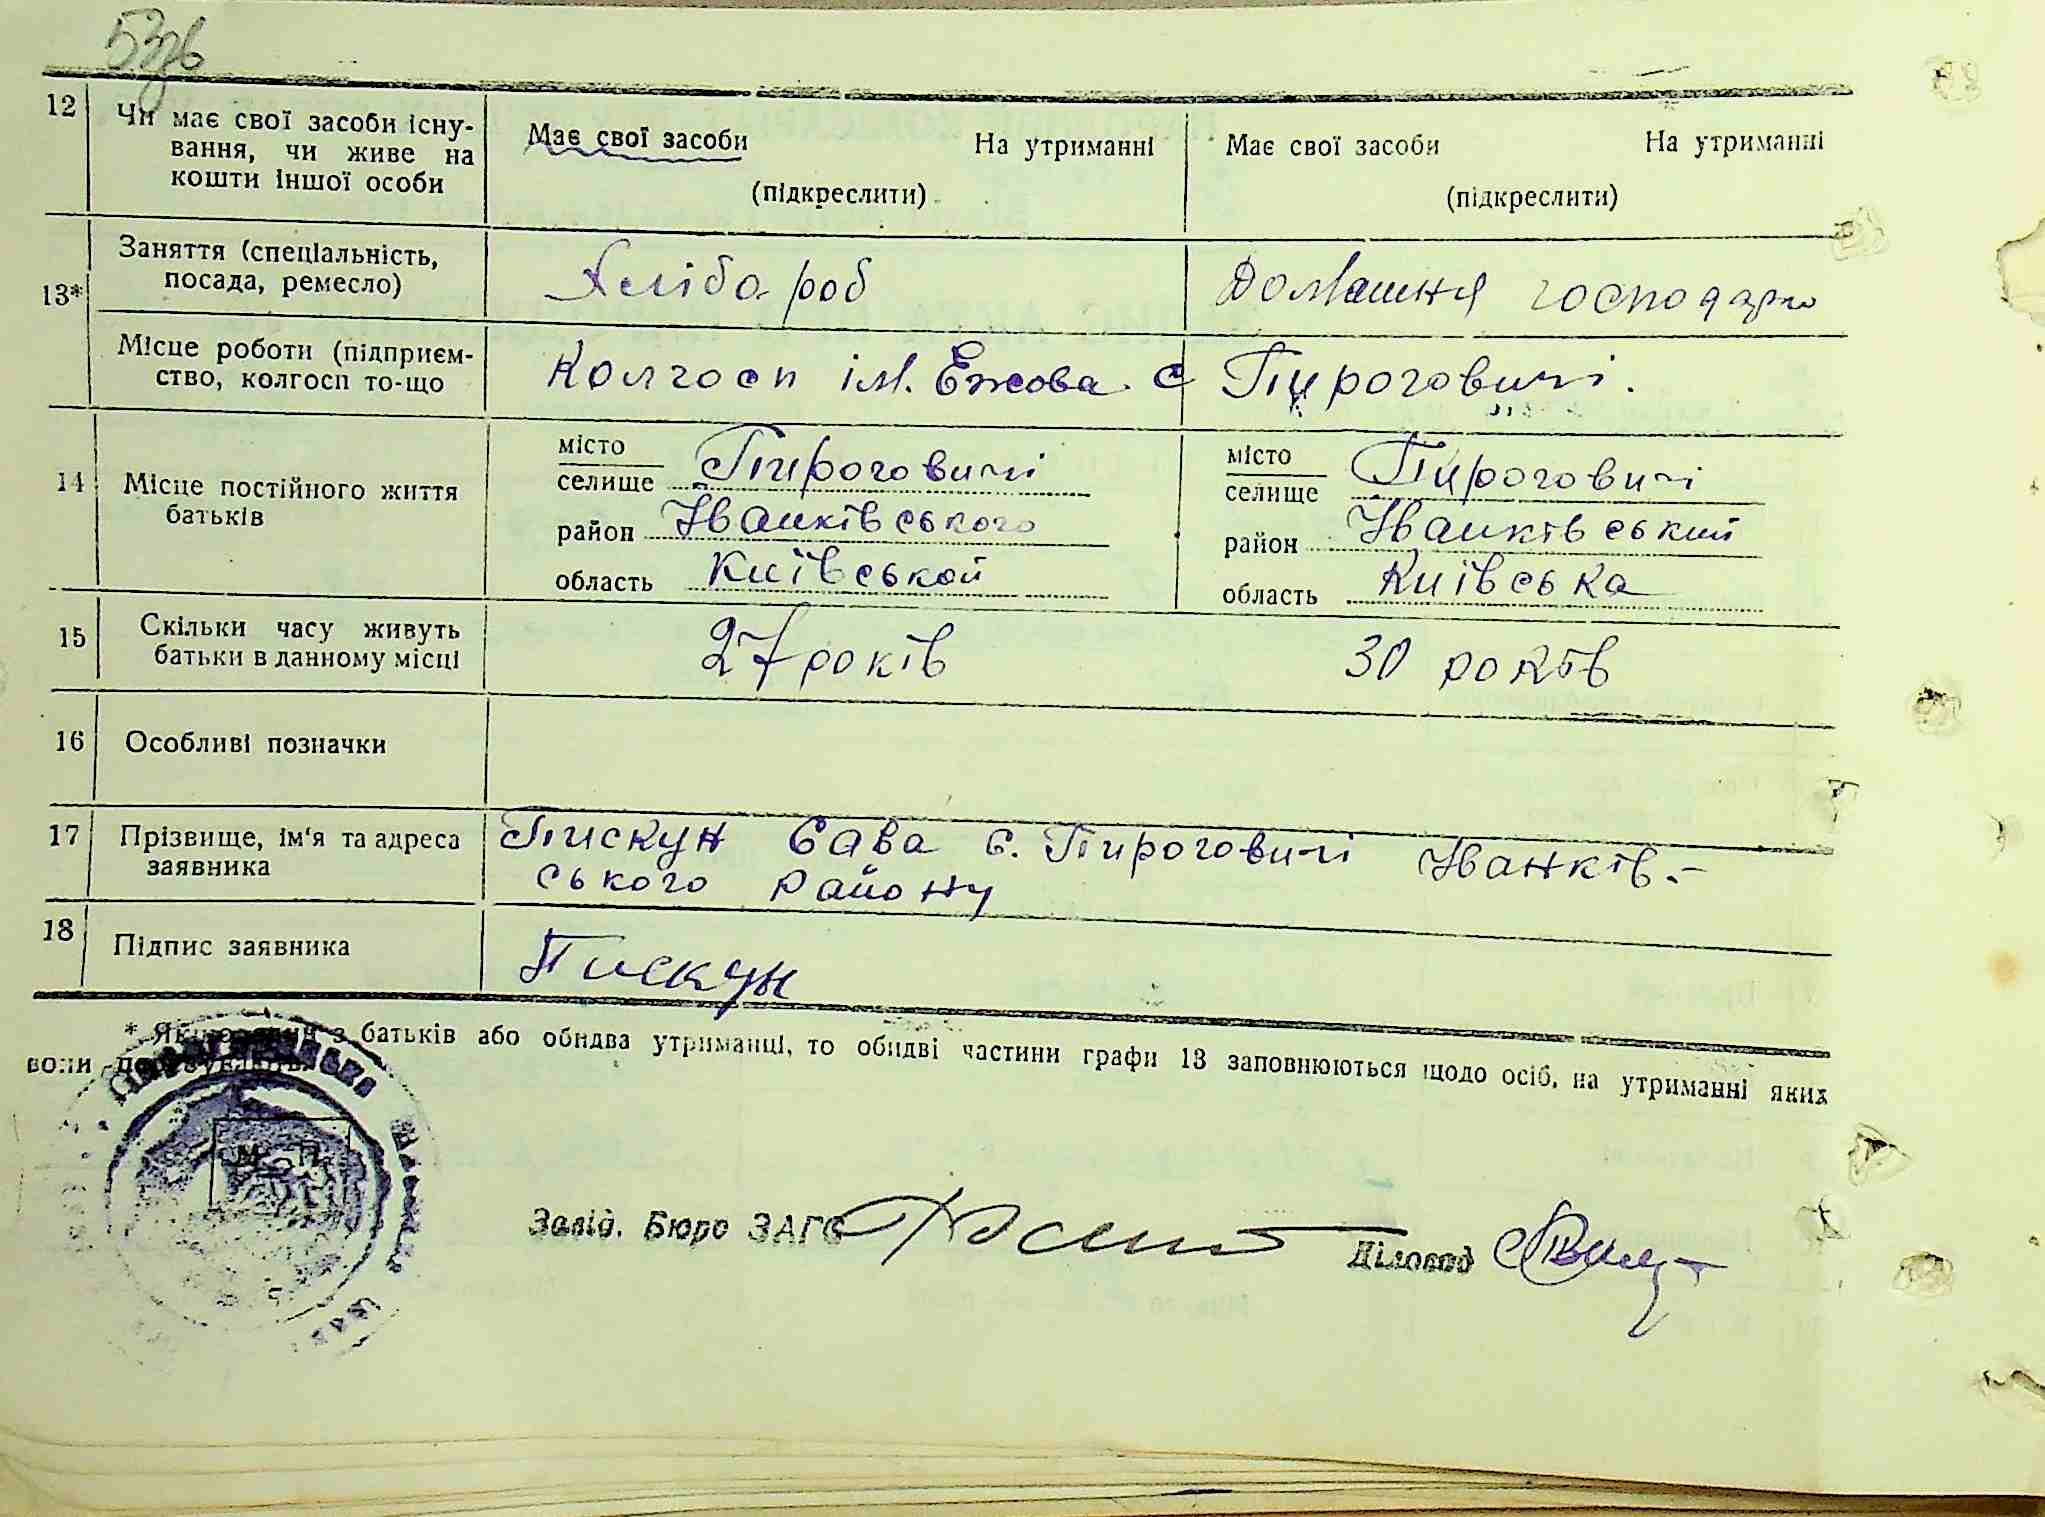 53зв
12 Чи має свої засоби існу-
вання, чи живе на
кошти іншої особи
Має свої засоби На утриманні
(підкреслити)
Має свої засоби На утриманні
(підкреслити)
13* Заняття (спеціальність,
посада, ремесло)
Хлібороб
Домашня господарка
Місце роботи (підприєм-
ство, колгосп то-що
Колгосп ім. Ежова с Пироговичі.
14 Місце постійного життя
батьків
місто
селище Пироговичі
район Іванківського
область Київської
місто
селище Пироговичі
район Іванківський
область Київська
15 Скільки часу живуть
батьки в данному місці
27 років
30 років
16 Особливі позначки
17 Прізвище, ім'я та адреса
заявника
Пискун Сава с. Пироговичі Іванків-
ського району
18 Підпис заявника
Пискун
* Якщо один з батьків або обидва утриманці, то обидві частини графи 13 заповнюються щодо осіб, на утриманні яких
вони перебувають.
М. П.
Завід. Бюро ЗАГС
Діловод